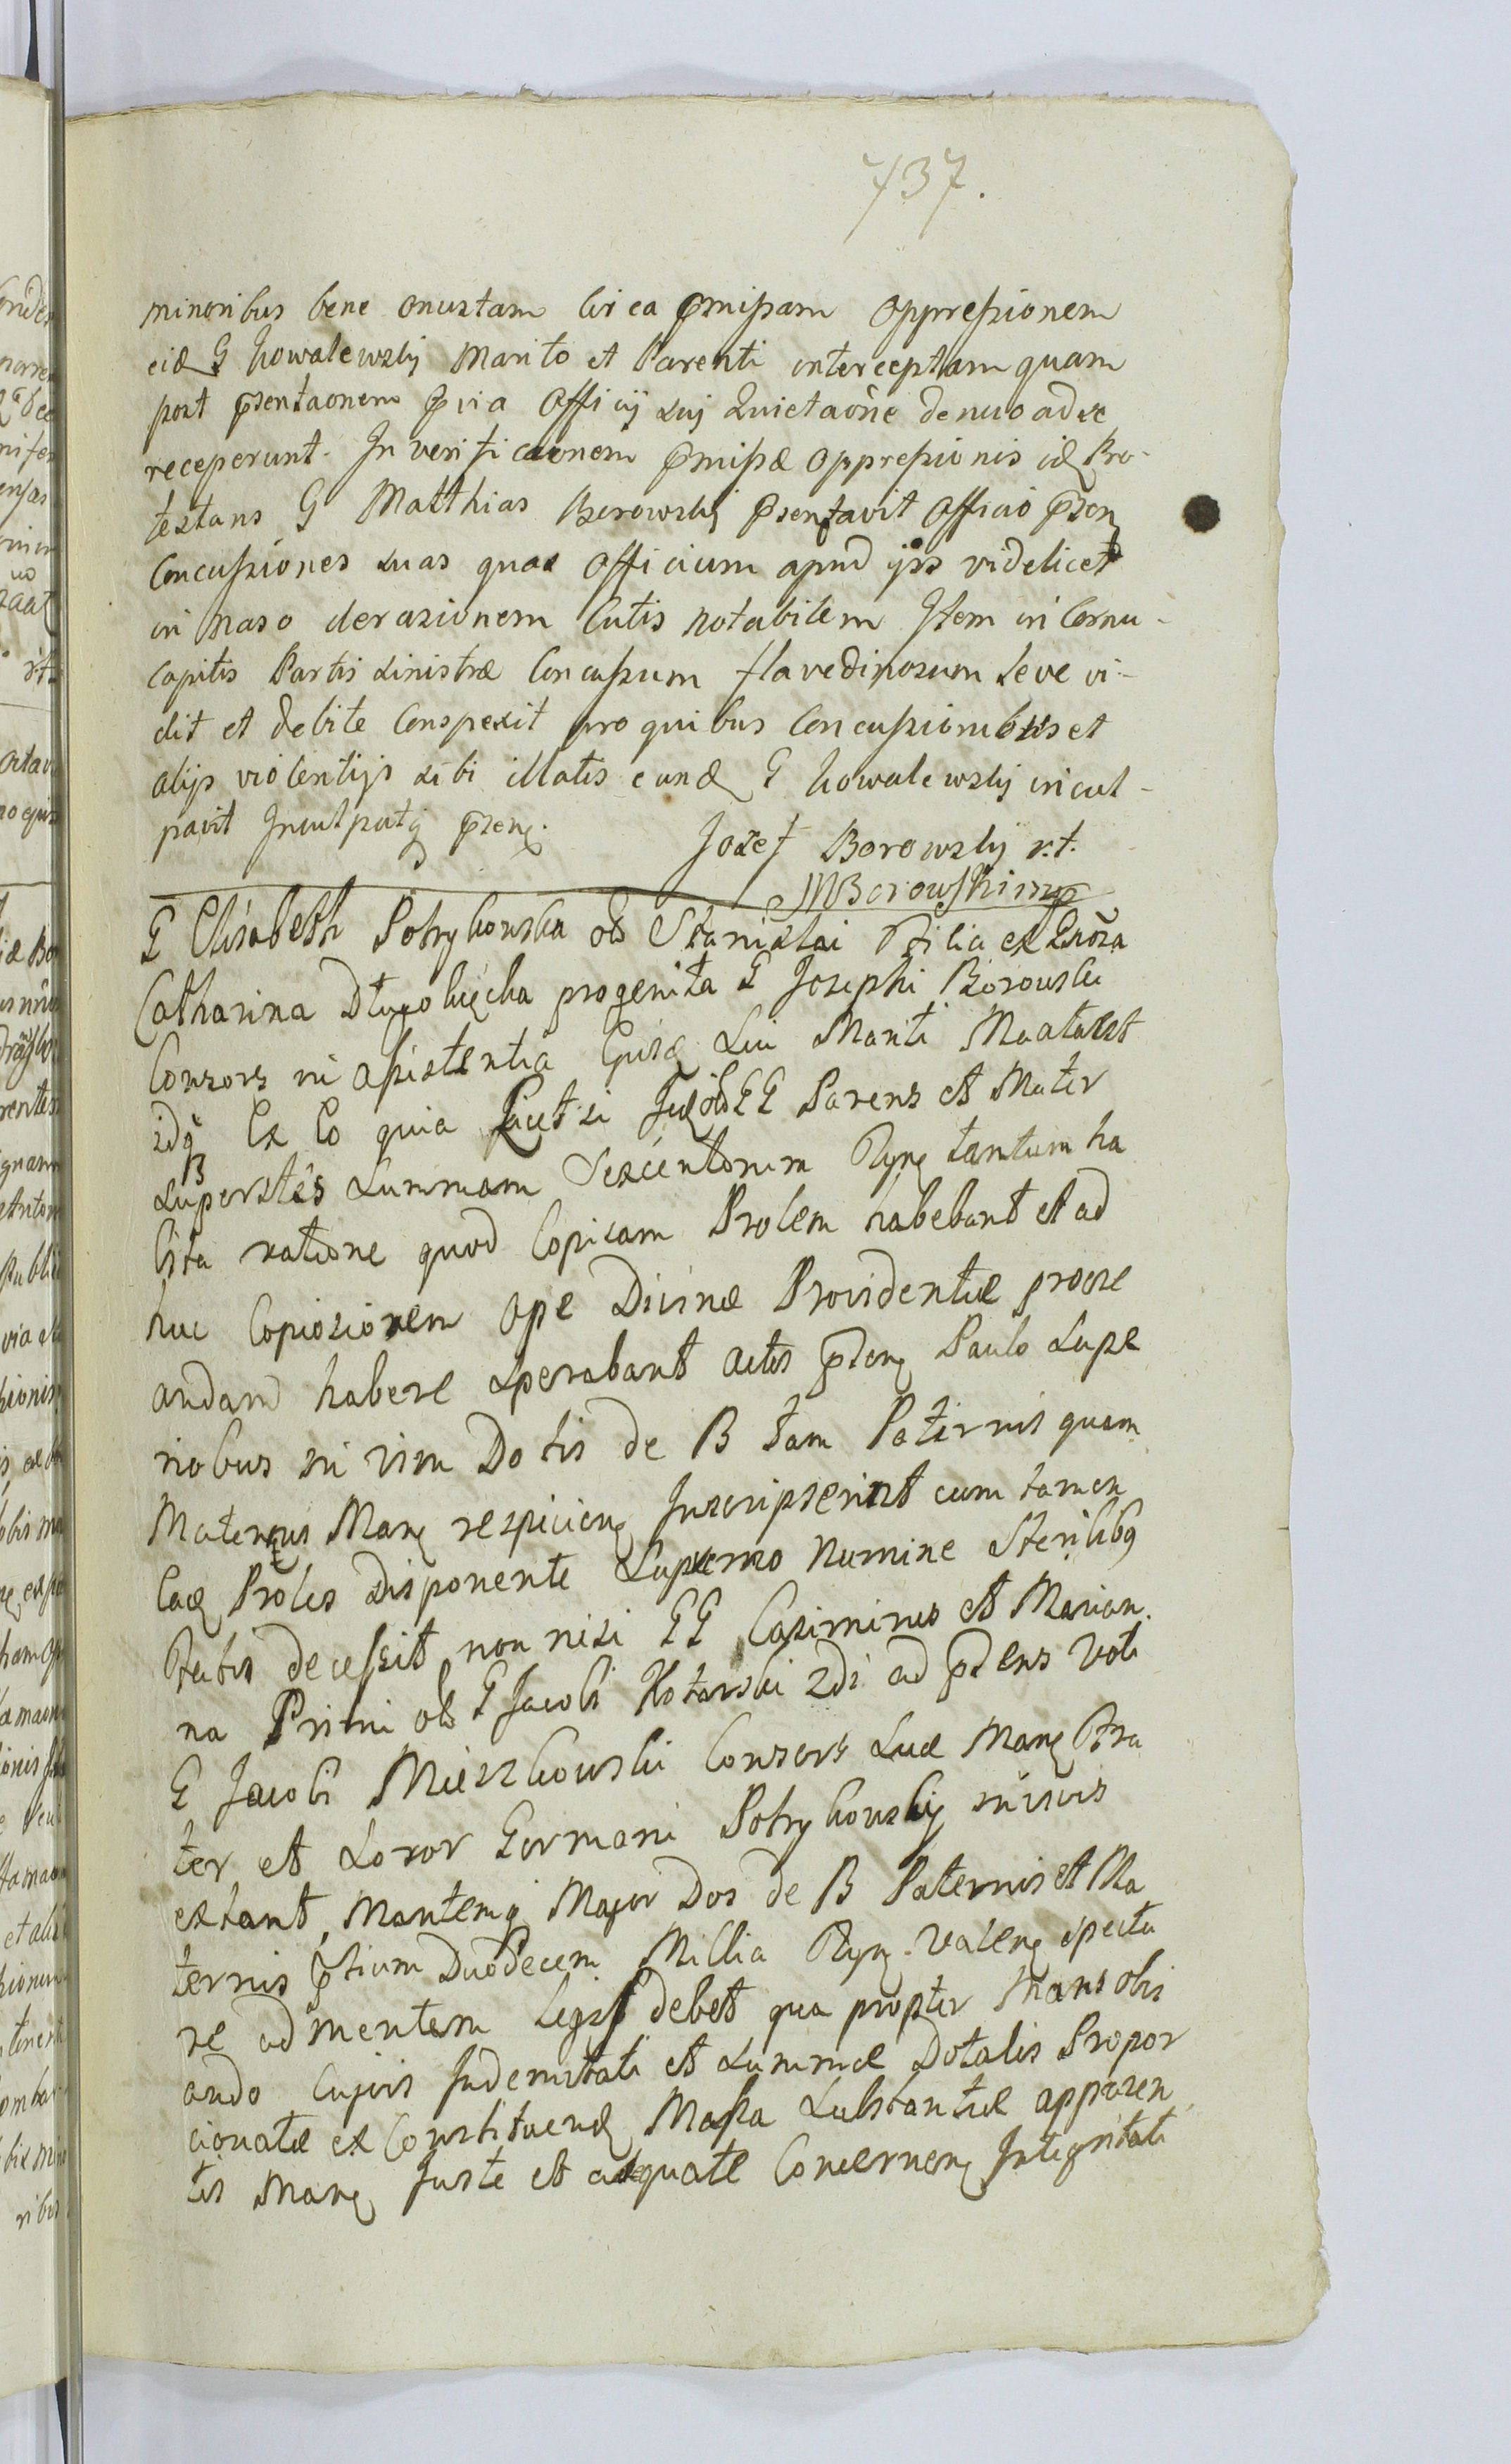 737.
minoribus bene onustam circa pmissam oppressionem
eid G Kowalewskij Marito et Parenti interceptam quam
post psentaonem p via Officij sui Quietaõne denuo ad se
receperunt. In verificaonem pmissæ oppressionis id Pro-
testans G Matthias Borowskij psentavit Officio psen
Concussiones suas quas Officium apud ipss videlicet
in naso derasionem Cutis notabilem Item in Cornu-
Capitis Partis sinistræ Concussum flavedinosum leve vi-
dit et debite Conspexit pro quibus Concussionibus et
alijs violentijs sibi illatis eund G Kowalewskij incul-
pavit Inculpatq psen.
Jozef Borowskij r.t.
MBorowski mp
G Elisabeth Potrykowska olb Stanislai Filia ex Gnõsa
Catharina Długołęcka progenita G Josephi Borowski
Consors in assistentia Ejusd sui Mariti
idq Ex Eo quia Licet si GG Parens et Mater
superstes summam Sexcentorum flyn tantum ha
Cita ratione quod Copicam Prolem habebant et ad
huc Copiosiorem ope Divinæ Providentiæ procre
andam habere sperabant actis psen Paulo supe
riobus in vim Dotis de B tam Paternis quam
Maternis Man respicien Inscripserint cum tamen
Ead Proles disponente Supremo Numine Sterilibq
Fatis decessit non nisi GG Casimirus et Marian
na Primi olb G Jacobi Kotarski 2di ad psens Voti
G Jacobi Mierzkowski Consors suæ Man Fra
ter et soror Germani Potrykowskij in vivis
extant, Mantemq Major Dos de B Paternis et Ma
ternis ptium Duodecem Millia flyn Valen specta
re ad mentem Legis debet qua propter Mans
ando Cujus Indemnitati et summæ Dotalis Propor
cionatæ ex Constituend Massa substantiæ apparen
tis Man Juste et adequate Concernen Integritati